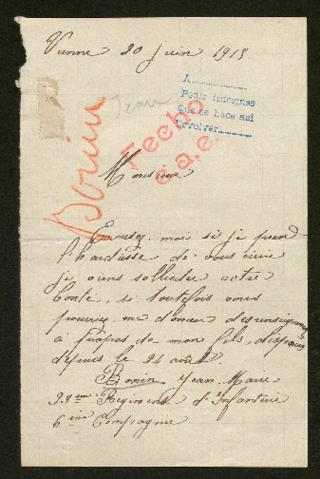 Vienne 20 juin 1915
Jean
A
Pedir informes
Que se hace así
Devolver
Bonin
Fecho
c.a.e.
Monsieur
Excusez mois si je prend
l'hardiesse de vous écrire
je viens solliciter votre
bonté, si toutefois vous
pourrez me donner des renseignements
à propos de mon fils, disparu
depuis le 24 août.
Bonin Jean Marie
99eme Régiment d'Infanterie
6eme Compagnie